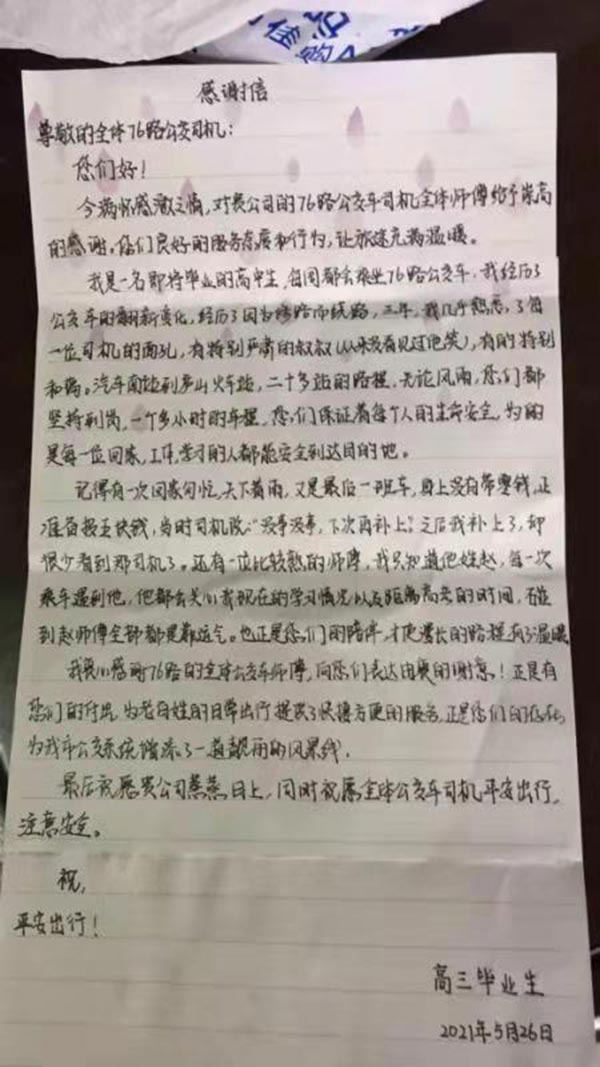 感谢信
尊敬的全体76路公交司机:
您们好!
今满怀感激之情,对贵公司的76路公交车司机全体师傅给予崇高
的感谢。您们良好的服务态度和行为,让旅途充满温暖。
我是一名即将毕业的高中生,每周都会乘坐76路公交车,我经历了
公交车的翻新变化,经历了因为修路而绕路,三年,我几乎熟悉了每
一位司机的面孔,有特别严肃的叔叔(从来没看见过他笑),有的特别
和蔼。汽车南站到庐山火车站,二十多站的路程,无论风雨,您们都
坚持到岗,一个多小时的车程,您们保证着每个人的生命安全,为的
是每一位回家,工作,学习的人都能安全到达目的地。
记得有一次回家匆忙,天下着雨,又是最后一班车,身上没有带零钱,正
准备投五块钱,当时司机说:“没事没事,下次再补上。”之后我补上了,却
很少看到那司机了。还有一位比较熟的师傅,我只知道他姓赵,每一次
乘车遇到他,他都会关心我现在的学习情况以及距离高考的时间,碰
到赵师傅全部都是靠运气。也正是您们的陪伴,才使漫长的路程有了温暖
我衷心感谢76路的全体公交车师傅,向您们表达由衷的谢意!正是有
您们的付出,为老百姓的日常出行提供了快捷方便的服务,正是您们的存在,
为我市公交系统增添了一道靓丽的风景线。
最后祝愿贵公司蒸蒸日上,同时祝愿全体公交车司机平安出行,
注意安全。
祝,
平安出行!
高三毕业生
2021年5月26日